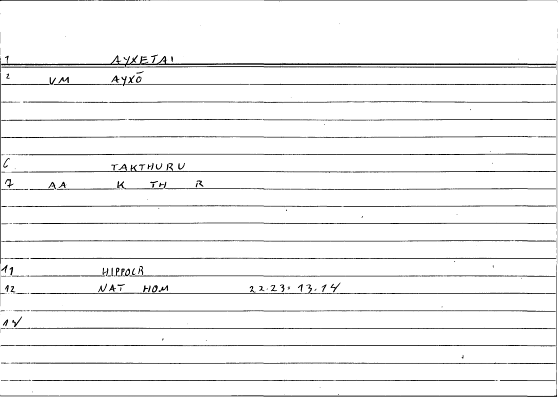 1 AYXETAI
2 VM AYXŌ
6 TAKTHURU
7 AA K TH R
11 HIPPOCR
12 NAT HOM 22.23.13.14
14